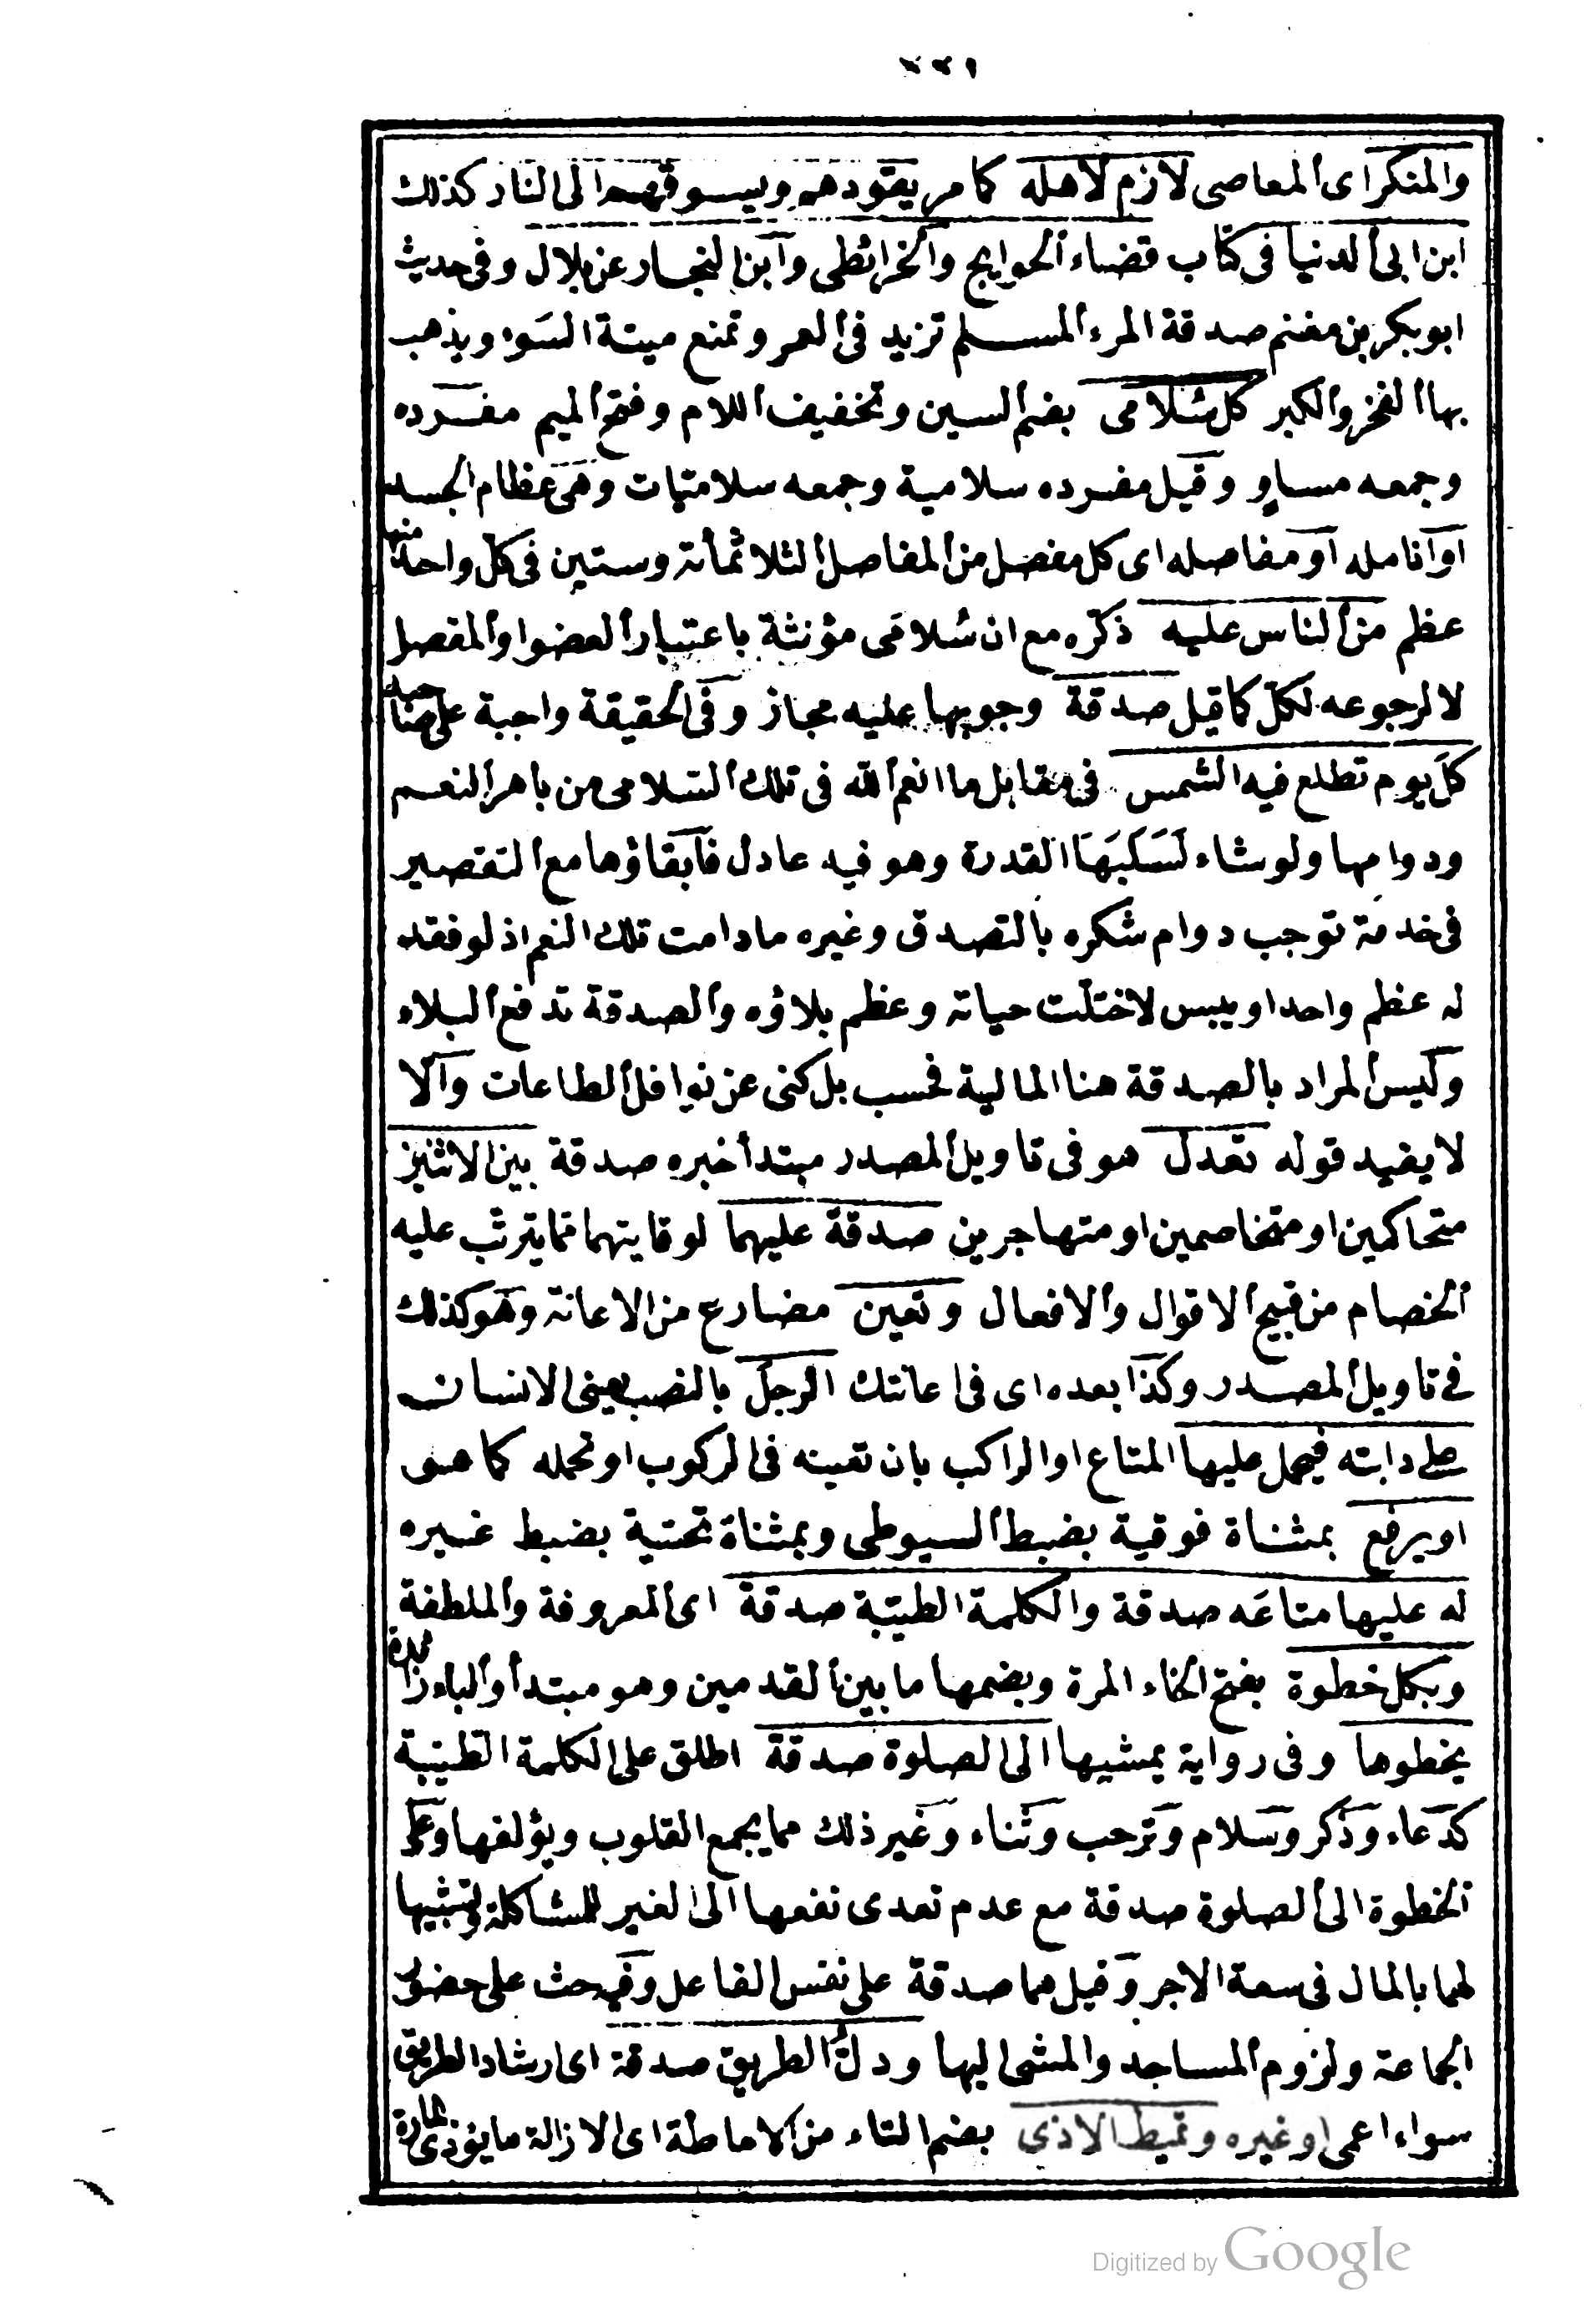 والمنكر اى المعاصى لازم لاهله كما مر يقودهم ويسوقهم الى النار كذلك
ابن ابى الدنيا فى كتاب قضاء الحوايج والخرائطى وابن النجار عن بلال وفى حديث
ابو بكر بن مغنم صدقة المرء المسلم تزيد فى العمر وتمنع ميتة السوء ويذهب
بها الفخر والكبر كل سلامى بضم السين وتخفيف اللام وفتح الميم مفرده
وجمعه مساو وقيل مفرده سلامية وجمعه سلاميات وهى عظام الجسد
او انامله او مفاصله اى كل مفصل من المفاصل الثلاثمأئة وستين فى كل واحد منها
عظم من الناس عليه ذكره مع ان سلامى مؤنثة باعتبار العضو او المفصل
لا لرجوعه لكل كما قيل صدقة وجوبها عليه مجاز وفى الحقيقة واجبة على صاحبه
كل يوم تطلع فيه الشمس فى مقابل ما انعم الله فى تلك السلامى من باهر النعم
ودوامها ولو شاء لسلبها القدرة وهو فيه عادل فابقاؤها مع التقصير
فى خدمة توجب دوام شكره بالتصدق وغيره مادامت تلك النعم اذ لو فقد
له عظم واحد او يبس لاختلت حياته وعظم بلاؤه والصدقة تدفع البلاء
وليس المراد بالصدقة هنا المالية فحسب بل كنى عن نوافل الطاعات والا
لا يفيد قوله تعدل هو فى تاويل المصدر مبتدأ خبره صدقة بين الاثنين
متحاكمين او متخاصمين او متهاجرين صدقة عليهما لوقايتهما مما يترتب عليه
الخصام من قبيح الاقوال والافعال وتعين مضارع من الاعانة وهو كذلك
فى تاويل المصدر وكذا بعده اى فى اعانتك الرجل بالنصب يعنى الانسان
على دابته فيحمل عليها المتاع او الراكب بان تعينه فى الركوب او تحمله كما هو
او يرفع بمثناة فوقية بضبط السيوطى وبمثناة تحتية بضبط غيره
له عليها متاعه صدقة والكلمة الطيبة صدقة اى المعروفة والملطفة
وبكل خطوة بفتح الخاء المرة وبضمها ما بين القدمين وهو مبتدأ والباء زائدة
يخطوها وفى رواية يمشيها الى الصلوة صدقة اطلق على الكلمة الطيبة
كدعاء وذكر وسلام وترحب وثناء وغير ذلك مما يجمع القلوب ويؤلفها وعلى
الخطوة الى الصلوة صدقة مع عدم تعدى نفعها الى الغير للمشاكلة ولتشبيها
لهما بالمال فى سعة الاجر وقيل هما صدقة على نفس الفاعل وفيه حث على حضور
الجماعة ولزوم المساجد والمشى اليها ودل الطريق صدقة اى ارشاد الطريق
سواء اعمى او غيره وتميط الاذى بضم التاء من الاماطة اى الازالة ما يؤذى المارة
Digitized by Google